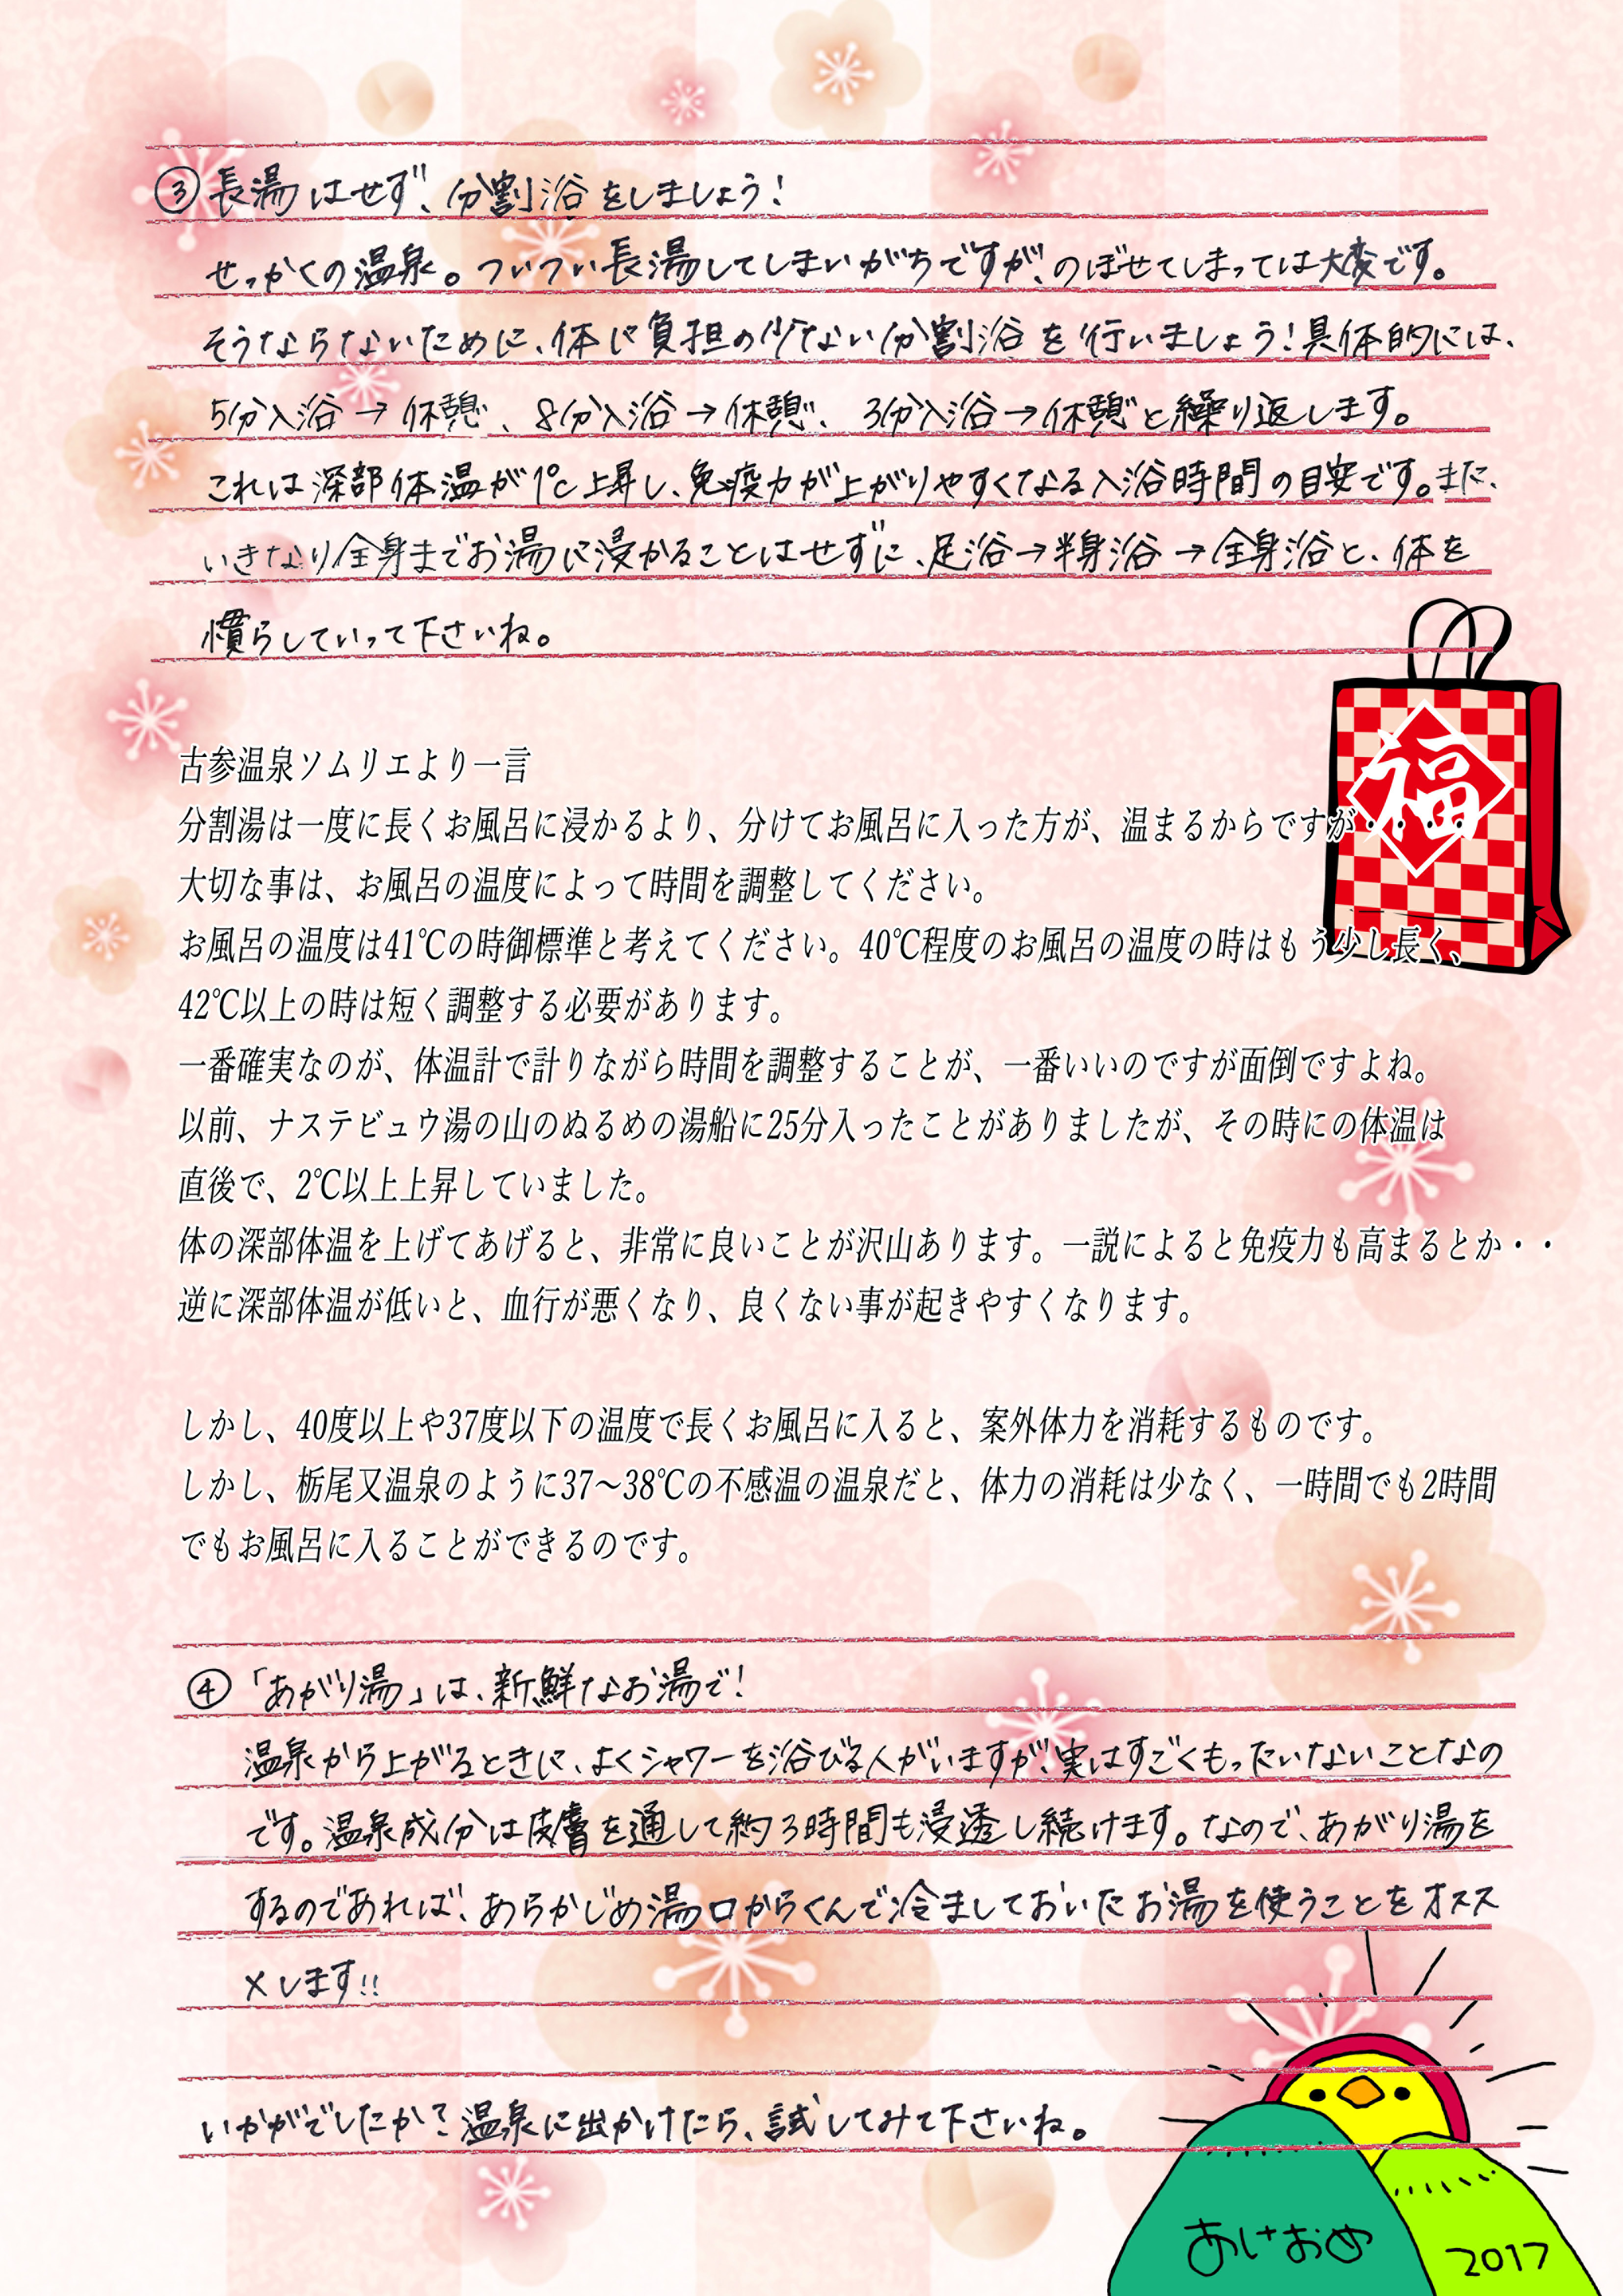 ③長湯はせず、分割浴をしましょう！
せっかくの温泉。ついつい長湯してしまいがちですが、のぼせてしまっては大変です。
そうならないために、体に負担の少ない分割浴を行いましょう！具体的には、
5分入浴→休憩、8分入浴→休憩、3分入浴→休憩と繰り返します。
これは深部体温が1℃上昇し、免疫力が上がりやすくなる入浴時間の目安です。また、
いきなり全身までお湯に浸かることはせずに、足浴→半身浴→全身浴と、体を
慣らしていって下さいね。
福
古参温泉ソムリエより一言
分割湯は一度に長くお風呂に浸かるより、分けてお風呂に入った方が、温まるからですが・・・・
大切な事は、お風呂の温度によって時間を調整してください。
お風呂の温度は41℃の時御標準と考えてください。40℃程度のお風呂の温度の時はもう少し長く、
42℃以上の時は短く調整する必要があります。
一番確実なのが、体温計で計りながら時間を調整することが、一番いいのですが面倒ですよね。
以前、ナステビュウ湯の山のぬるめの湯船に25分入ったことがありましたが、その時にの体温は
直後で、2℃以上上昇していました。
体の深部体温を上げてあげると、非常に良いことが沢山あります。一説によると免疫力も高まるとか・・
逆に深部体温が低いと、血行が悪くなり、良くない事が起きやすくなります。
しかし、40度以上や37度以下の温度で長くお風呂に入ると、案外体力を消耗するものです。
しかし、栃尾又温泉のように37～38℃の不感温の温泉だと、体力の消耗は少なく、一時間でも2時間
でもお風呂に入ることができるのです。
④「あがり湯」は、新鮮なお湯で！
温泉から上がるときに、よくシャワーを浴びる人がいますが、実はすごくもったいないことなの
です。温泉成分は皮膚を通して約3時間も浸透し続けます。なので、あがり湯を
するのであれば、あらかじめ湯口からくんで冷ましておいたお湯を使うことをオスス
メします!!
いかがでしたか？温泉に出かけたら、試してみて下さいね。
あけおめ
2017